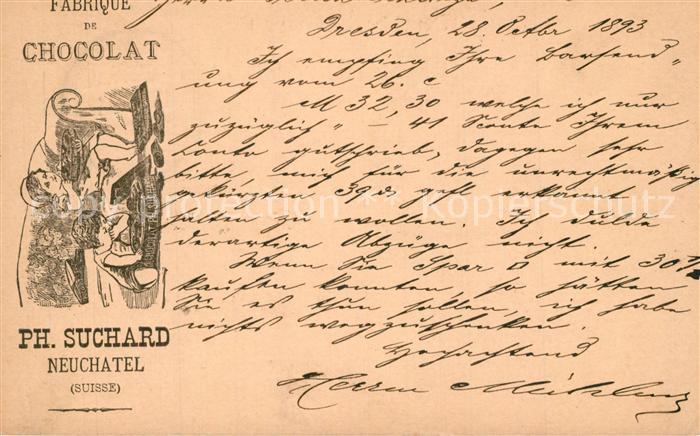 FABRIQUE
DE
CHOCOLAT
PH. SUCHARD
NEUCHATEL
(SUISSE)
Dresden, 28. Octbr 1893
Ich empfing Ihre Barsend-
ung vom 26. c
M 32,30 welche ich nur
zuzüglich " — 41 Sconto Ihrem
Conto gutschrieb, dagegen sehr
bitte, mich für die unrechtmäßig
gekürzten 39 d. gefl. erkannt
halten zu wollen. Ich dulde
derartige Abzüge nicht.
Wenn Sie Spar mit 30
kaufen konnten, so hätten
Sie es thun sollen, ich habe
nichts wegzuschenken.
Hochachtend
copy protection ** Kopierschutz